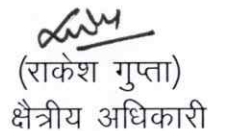 (राकेश गुप्ता)
क्षैत्रीय अधिकारी